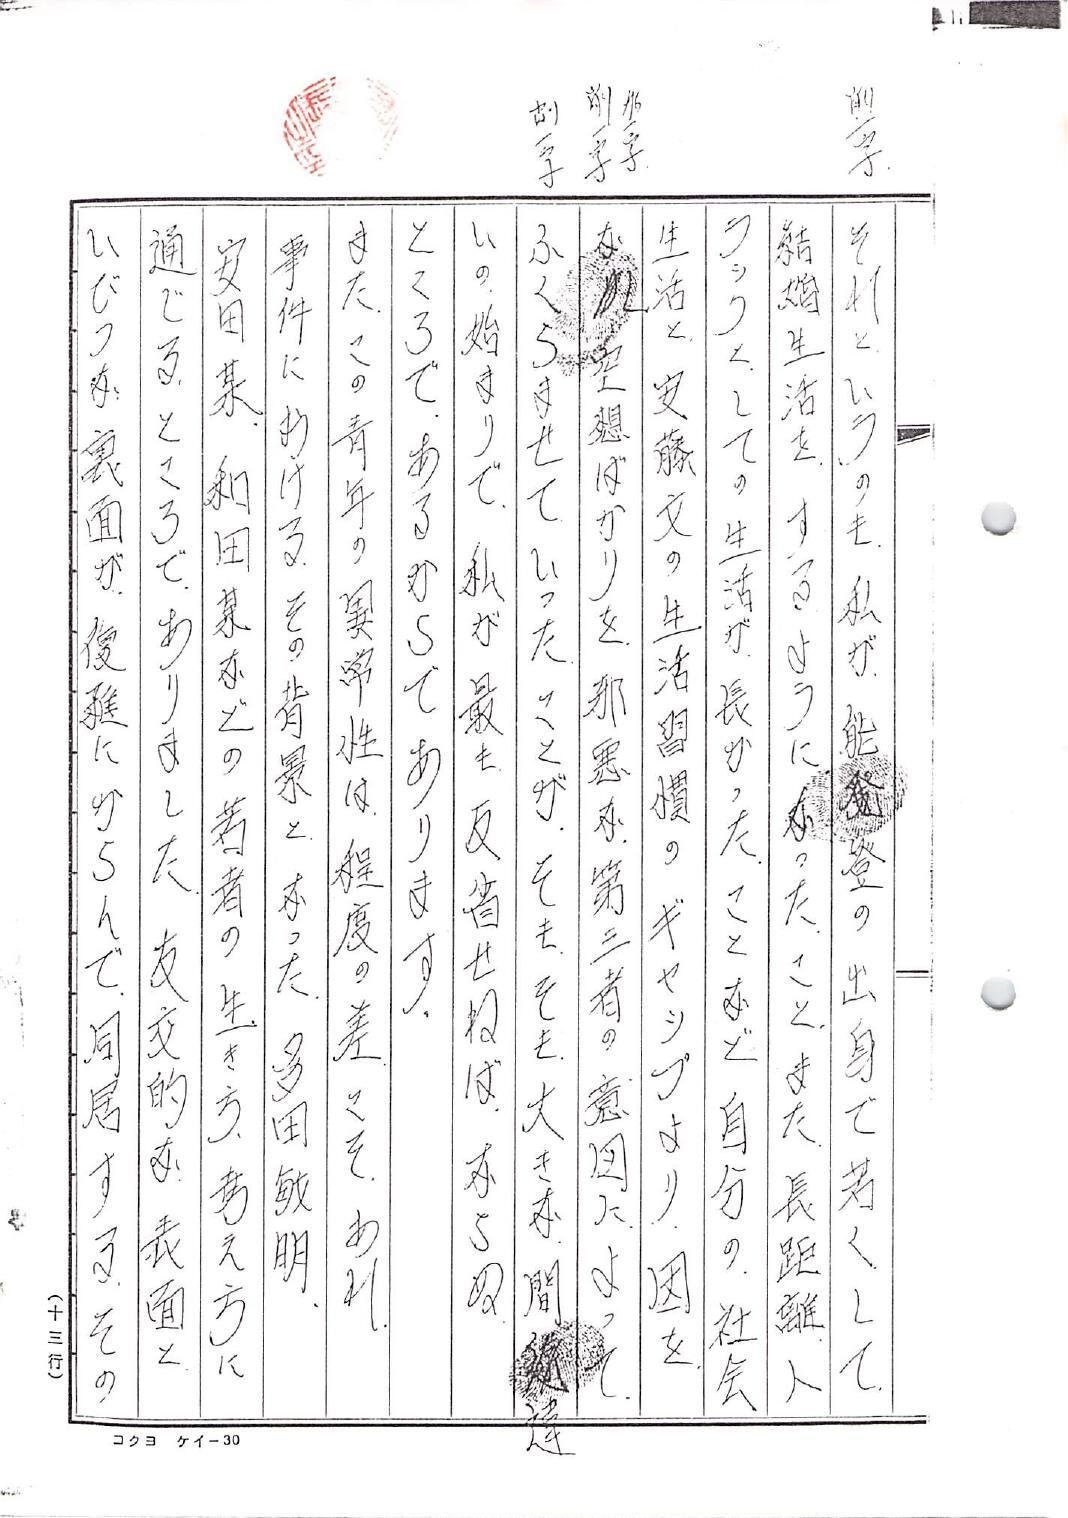 削一字
加一字
削一字
削一字
それというのも、私が、能登の出身で若くして、
結婚生活を、するようになったこと、また、長距離、トラ
ックとしての生活が、長かった、ことなど自分の、社会
生活と、安藤文の生活習慣のギャップより、因を、
な空想ばかりを、邪悪な、第三者の意図に、よって、
ふくらませて、いった、ことが、そも、そも、大きな、間違
いの、始まりで、私が最も、反省せねば、ならぬ、
ところで、あるからであります。
また、この青年の異常性は、程度の差こそ、あれ、
事件における、その背景と、なった、多田敏明、
安田某、和田某などの若者の生き方、考え方に
通じる、ところで、ありました、友交的な、表面と、
いびつな、裏面が、複雑にからんで、同居する、その
(十三行)
コクヨ ケイー30